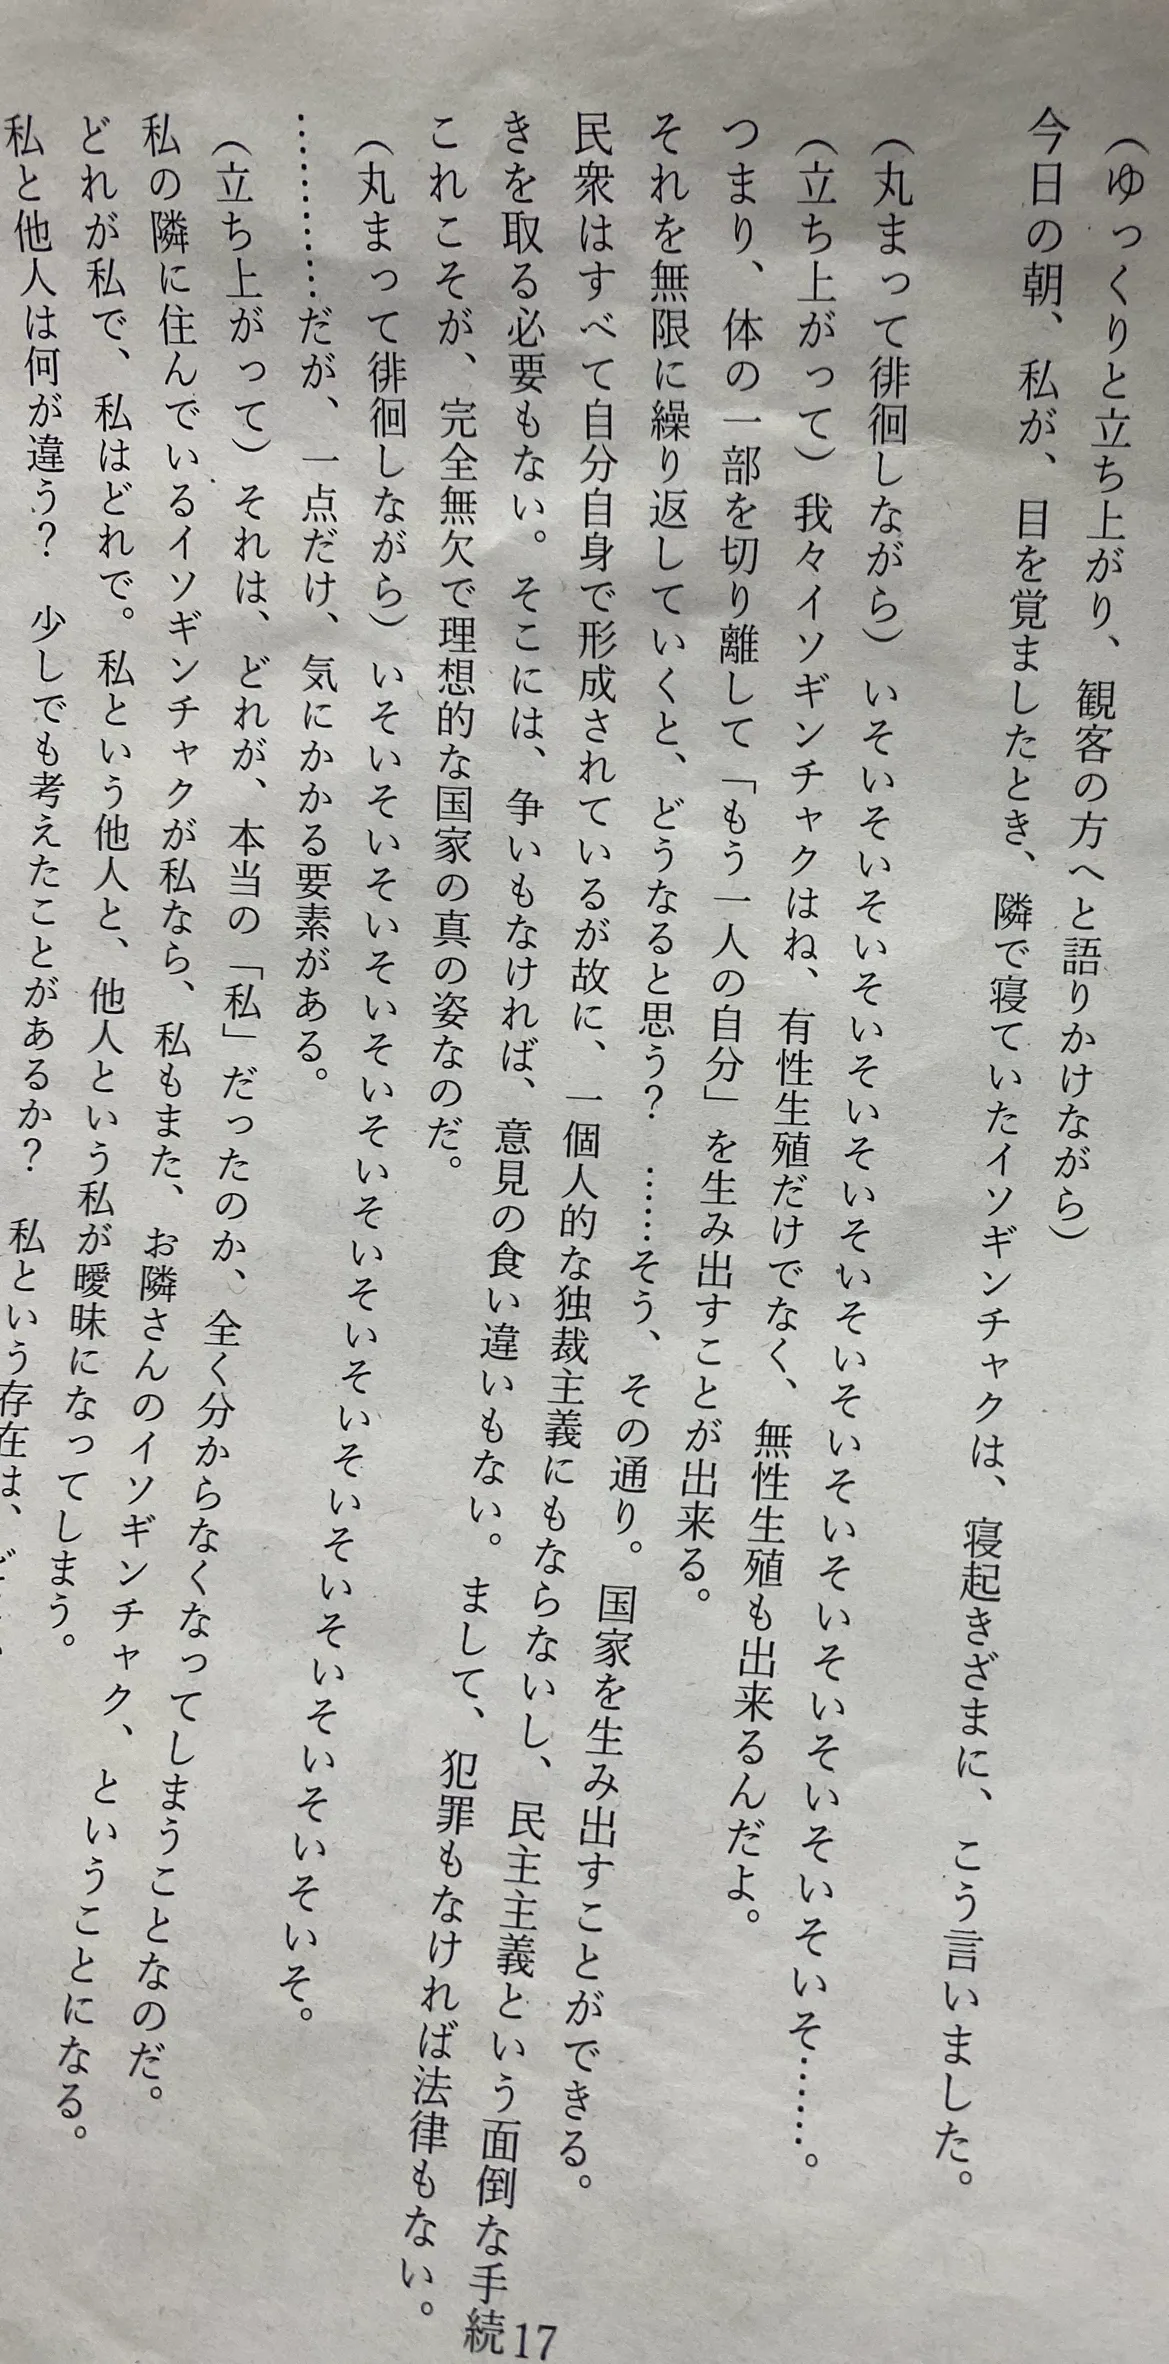 （ゆっくりと立ち上がり、観客の方へと語りかけながら）
今日の朝、私が、目を覚ましたとき、隣で寝ていたイソギンチャクは、寝起きざまに、こう言いました。
（丸まって徘徊しながら）いそいそいそいそいそいそいそいそいそいそいそいそいそいそいそいそいそ……。
（立ち上がって）我々イソギンチャクはね、有性生殖だけでなく、無性生殖も出来るんだよ。
つまり、体の一部を切り離して「もう一人の自分」を生み出すことが出来る。
それを無限に繰り返していくと、どうなると思う？　……そう、その通り。国家を生み出すことができる。
民衆はすべて自分自身で形成されているが故に、一個人的な独裁主義にもならないし、民主主義という面倒な手続
きを取る必要もない。そこには、争いもなければ、意見の食い違いもない。まして、犯罪もなければ法律もない。
これこそが、完全無欠で理想的な国家の真の姿なのだ。
（丸まって徘徊しながら）いそいそいそいそいそいそいそいそいそいそいそいそいそいそいそ。
………だが、一点だけ、気にかかる要素がある。
（立ち上がって）それは、どれが、本当の「私」だったのか、全く分からなくなってしまうことなのだ。
私の隣に住んでいるイソギンチャクが私なら、私もまた、お隣さんのイソギンチャク、ということになる。
どれが私で、私はどれで。私という他人と、他人という私が曖昧になってしまう。
私と他人は何が違う？　少しでも考えたことがあるか？　私という存在は、
17